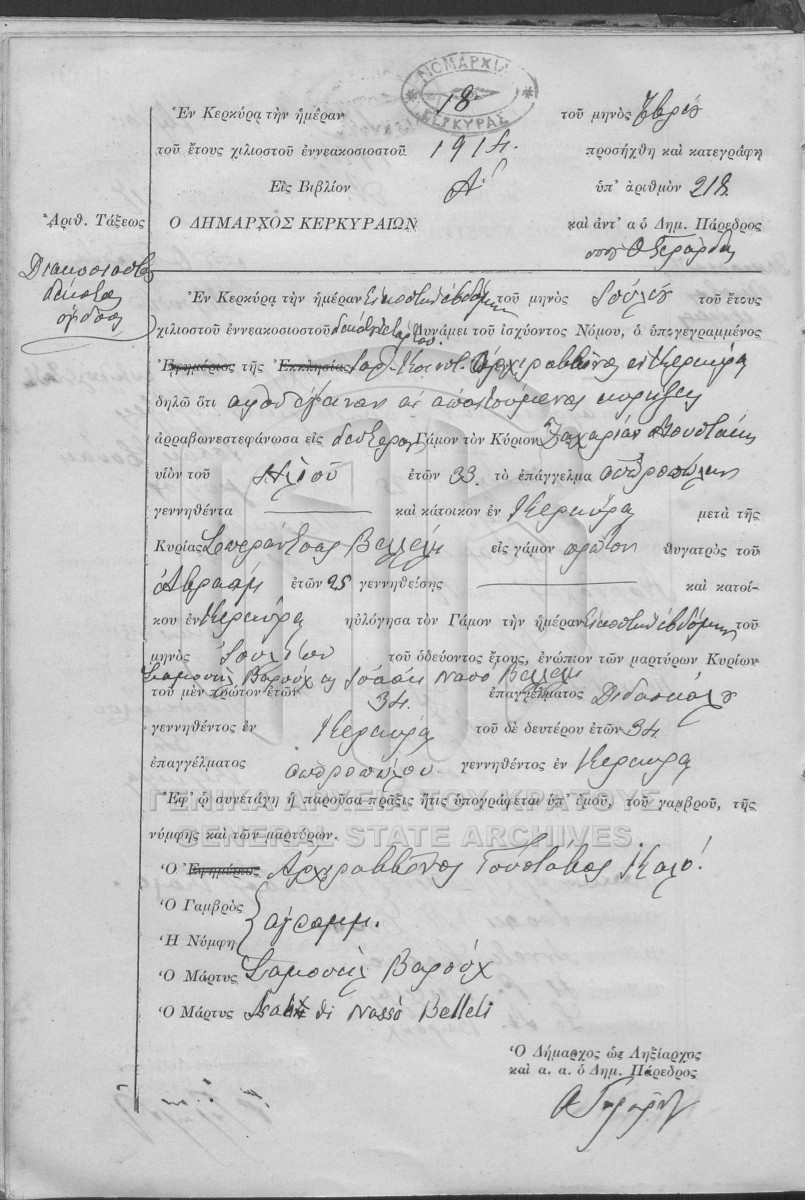 ΝΟΜΑΡΧΙΑ
ΚΕΡΚΥΡΑΣ
Ἐν Κερκύρᾳ τὴν ἡμέραν 18 τοῦ μηνὸς
τοῦ ἔτους χιλιοστοῦ ἐννεακοσιοστοῦ 1914 προσήχθη καὶ κατεγράφη
Εἰς Βιβλίον Α' ὑπ' ἀριθμὸν 218
Ἀριθ. Τάξεως
Ο ΔΗΜΑΡΧΟΣ ΚΕΡΚΥΡΑΙΩΝ καὶ ἀντ' α ὁ Δημ. Πάρεδρος
Διακοσιοστὸς
δέκατος
ὄγδοος
Ἐν Κερκύρᾳ τὴν ἡμέραν Εἰκοστὴν ἑβδόμην τοῦ μηνὸς Ἰουλίου τοῦ ἔτους
χιλιοστοῦ ἐννεακοσιοστοῦ δεκάτου τετάρτου Δυνάμει τοῦ ἰσχύοντος Νόμου, ὁ ὑπογεγραμμένος
Ἐφημέριος τῆς Ἐκκλησίας Ἀρχιραββῖνος ἐν Κερκύρᾳ
δηλῶ ὅτι αἱ ἀπαιτούμεναι κηρύξεις
ἀρραβωνεστεφάνωσα εἰς δεύτερον Γάμον τὸν Κύριον Ζαχαρίαν Μουστάκη
υἱὸν τοῦ Ἠλιοῦ ἐτῶν 33 τὸ ἐπάγγελμα
γεννηθέντα καὶ κάτοικον ἐν Κερκύρᾳ μετὰ τῆς
Κυρίας Σπεράντσας Βελλέλη εἰς γάμον πρῶτον θυγατρὸς τοῦ
Ἀβραὰμ ἐτῶν 25 γεννηθείσης καὶ κατοί-
κου ἐν Κερκύρᾳ ηὐλόγησα τὸν Γάμον τὴν ἡμέραν Εἰκοστὴν ἑβδόμην τοῦ
μηνὸς Ἰουλίου τοῦ ὁδεύοντος ἔτους, ἐνώπιον τῶν μαρτύρων Κυρίων
Σαμουὴλ Βαρούχ Ἰσαὰκ Νασσὸ Βελλέλη
τοῦ μὲν πρώτου ἐτῶν 34 ἐπαγγέλματος Διδασκάλου
γεννηθέντος ἐν Κερκύρᾳ τοῦ δὲ δευτέρου ἐτῶν 34
ἐπαγγέλματος γεννηθέντος ἐν Κερκύρᾳ
Ἐφ' ᾧ συνετάγη ἡ παροῦσα πρᾶξις ἥτις ὑπογράφεται ὑπ' ἐμοῦ, τοῦ γαμβροῦ, τῆς
ΓΕΝΙΚΑ ΑΡΧΕΙΑ ΤΟΥ ΚΡΑΤΟΥΣ
νύμφης καὶ τῶν μαρτύρων.
GENERAL STATE ARCHIVES
Ὁ Ἐφημέριος Ἀρχιραββῖνος
Ὁ Γαμβρὸς
Ἡ Νύμφη ἀγραμμ.
Ὁ Μάρτυς Σαμουὴλ Βαρούχ
Ὁ Μάρτυς Isach di Nassò Belleli
Ὁ Δήμαρχος ὡς Ληξίαρχος
καὶ α. α. ὁ Δημ. Πάρεδρος